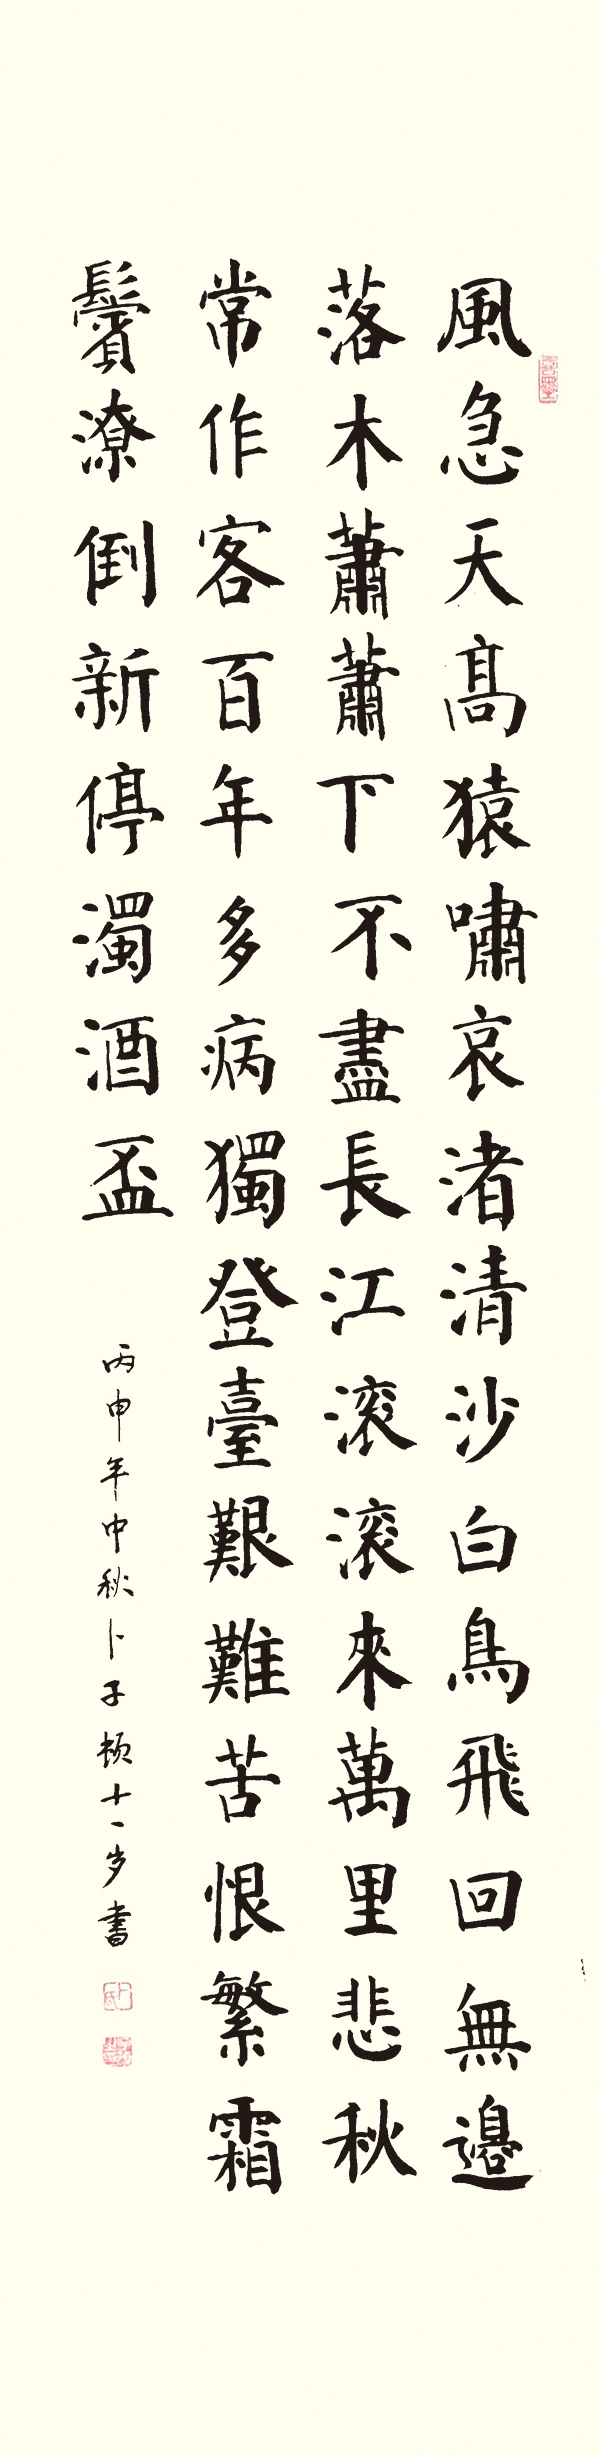 風急天髙猿嘯哀渚清沙白鳥飛回無邊
落木蕭蕭下不盡長江滚滚來萬里悲秋
常作客百年多病獨登臺艱難苦恨繁霜
鬢潦倒新停濁酒盃
丙申年中秋卜子桢十一岁書